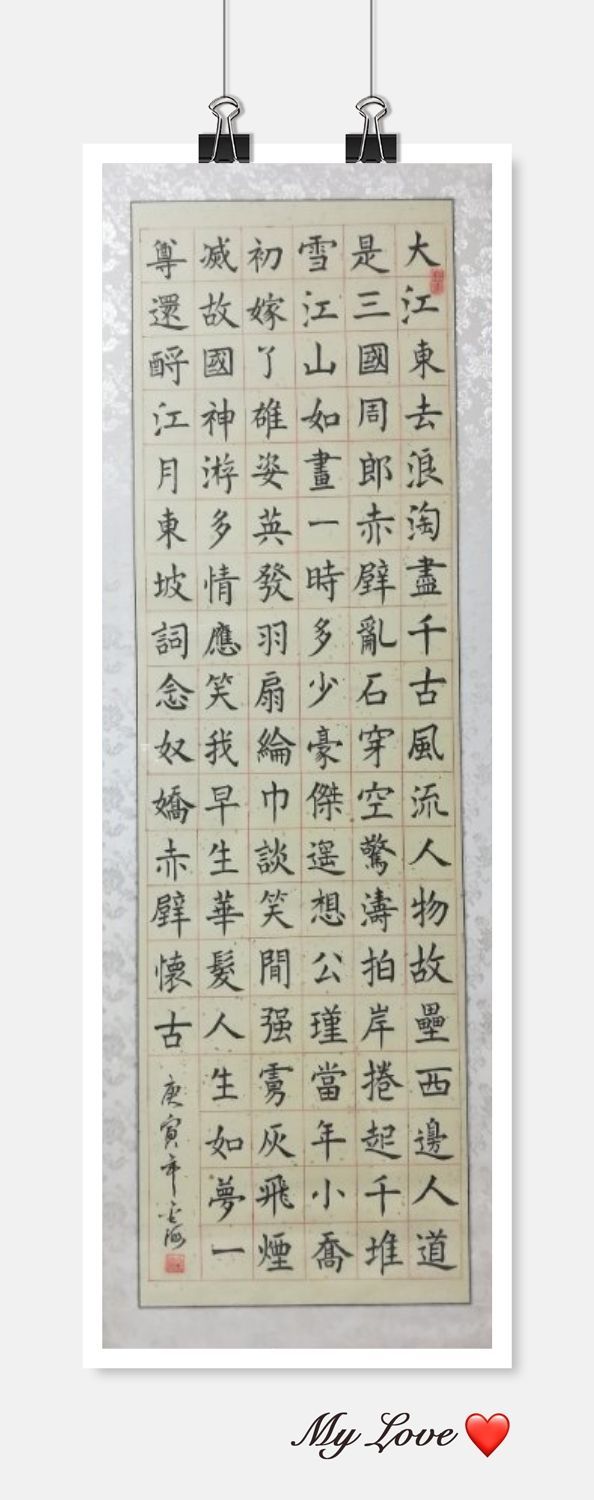 大江東去浪淘盡千古風流人物故壘西邊人道
是三國周郎赤壁亂石穿空驚濤拍岸捲起千堆
雪江山如畫一時多少豪傑遥想公瑾當年小喬
初嫁了雄姿英發羽扇綸巾談笑間强虜灰飛煙
滅故國神游多情應笑我早生華髮人生如夢一
尊還酹江月東坡詞念奴嬌赤壁懷古
庚寅年
My Love ❤️